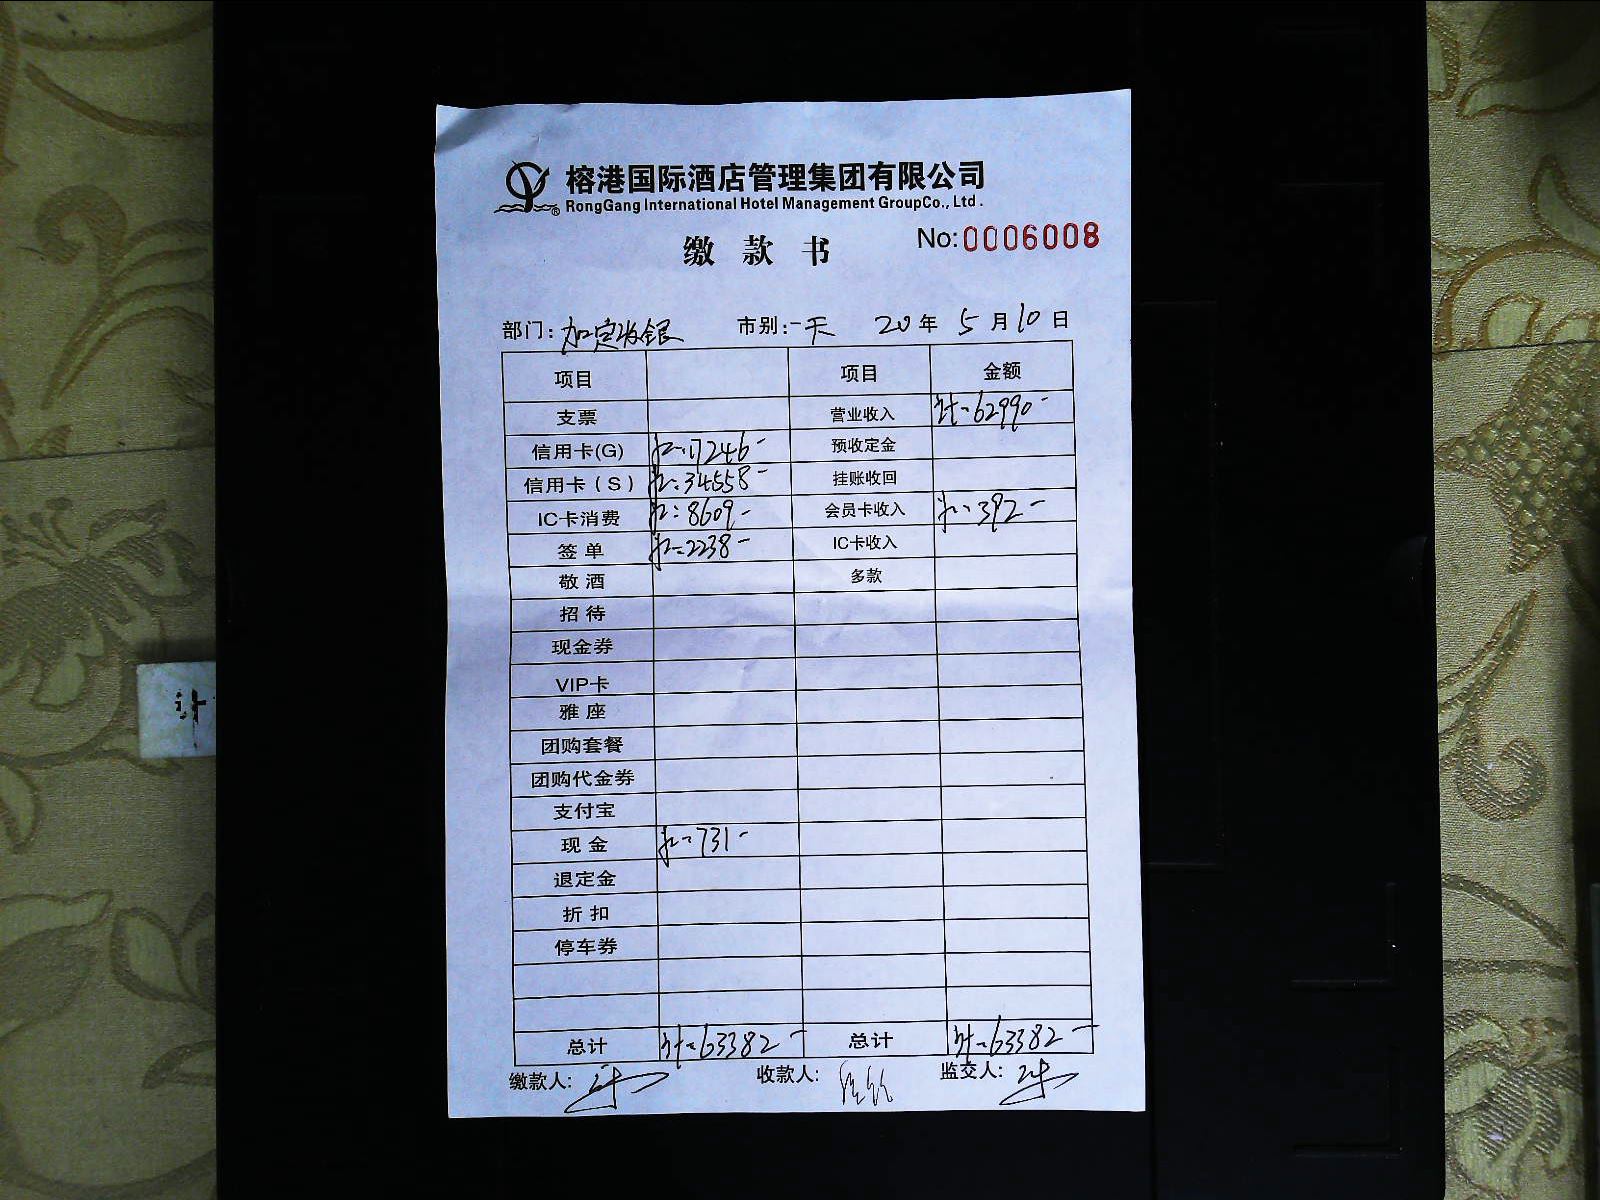 榕港国际酒店管理集团有限公司
RongGang International Hotel Management GroupCo., Ltd.
缴款书 No:0006008
部门:加定收银 市别:一天 20年5月10日
项目 项目 金额
支票 营业收入 计:62990-
信用卡(G) 17246- 预收定金
信用卡(S) 34558- 挂账收回
IC卡消费 8609- 会员卡收入 392-
签单 2238- IC卡收入
敬酒 多款
招待
现金券
VIP卡
雅座
团购套餐
团购代金券
支付宝
现金 731-
退定金
折扣
停车券
总计 计:63382- 总计 计:63382-
缴款人: 收款人: 监交人:
计